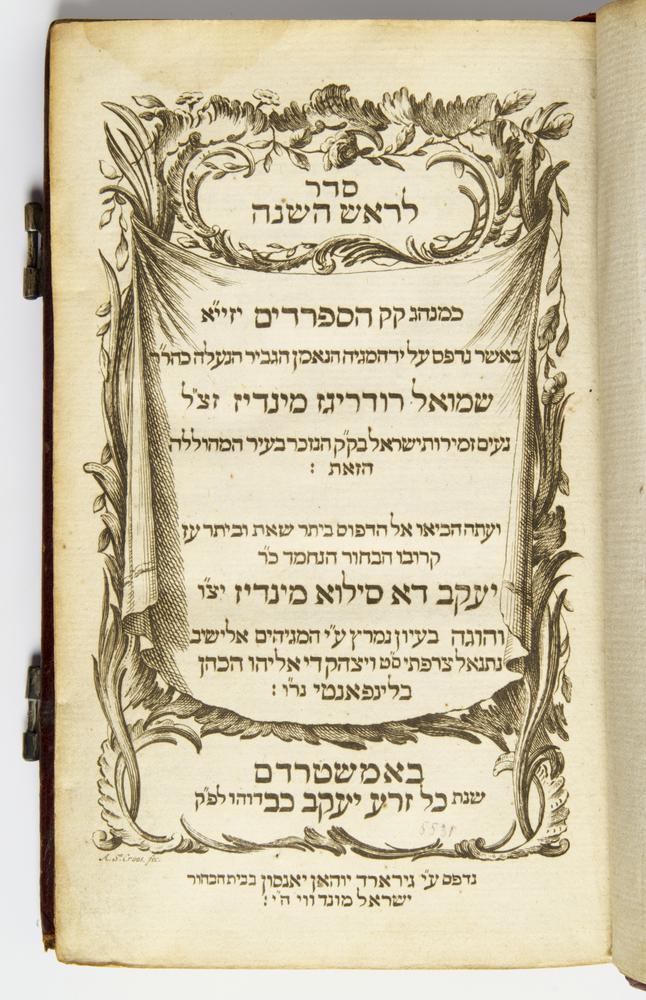 סדר
לראש השנה
כמנהג קק הספרדים יזייא
כאשר נדפס על יד המגיה הנאמן הגביר הנעלה כהר״ר
שמואל רודריגז מינדיז זצ״ל
נעים זמירות ישראל בק״ק הנזכר בעיר המהוללה
הזאת :
ועתה הביאו אל הדפוס ביתר שאת וביתר עז
קרובו הבחור הנחמד כ״ר
יעקב דא סילוא מינדיז יצ״ו
והוגה בעיון נמרץ ע״י המגיהים אלישיב
נתנאל צרפתי ס״ט ויצהק די אליהו הכהן
בלינפאנטי נר״ו :
באמשטרדם
שנת כל זרע יעקב כבדוהו לפ״ק
5531
A. S.t Croos. fec.
נדפס ע״י גיראדר יוהאן יאנסון בבית הבחור
ישראל מונדווי ה״י :